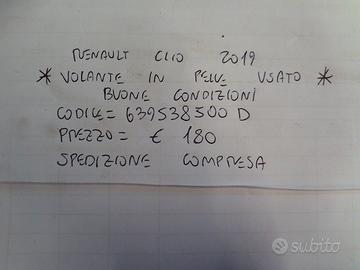 RENAULT CLIO 2019
* VOLANTE IN PELLE USATO *
BUONE CONDIZIONI
CODICE = 639538500 D
PREZZO = € 180
SPEDIZIONE COMPRESA
subito